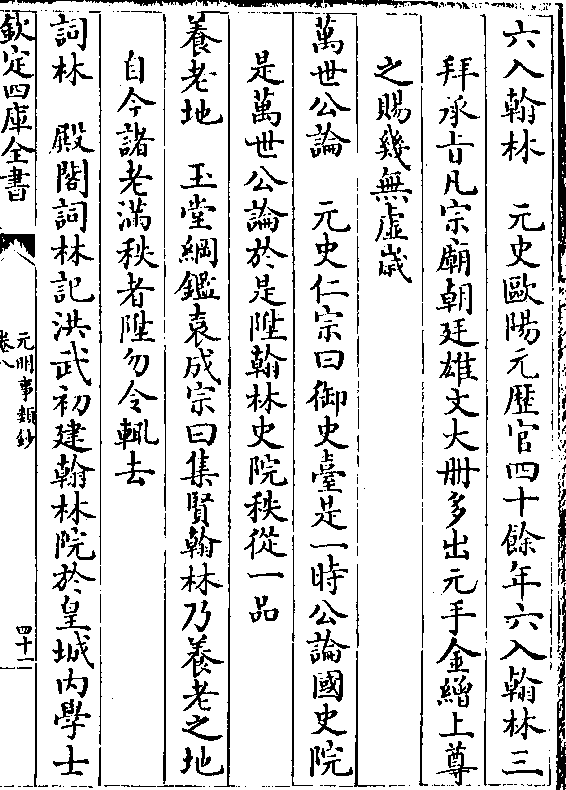 六入翰林　元史歐陽元歴官四十餘年六入翰林三
拜承旨凡宗廟朝廷雄文大冊多出元手金繒上尊
之賜幾無虛歲
萬世公論　元史仁宗曰御史臺是一時公論國史院
是萬世公論於是陞翰林史院秩從一品
養老地　玉堂綱鑑袁成宗曰集賢翰林乃養老之地
自今諸老滿秩者陞勿令輒去
詞林　殿閣詞林記洪武初建翰林院於皇城内學士
欽定四庫全書
元明事類鈔
卷八
四十一